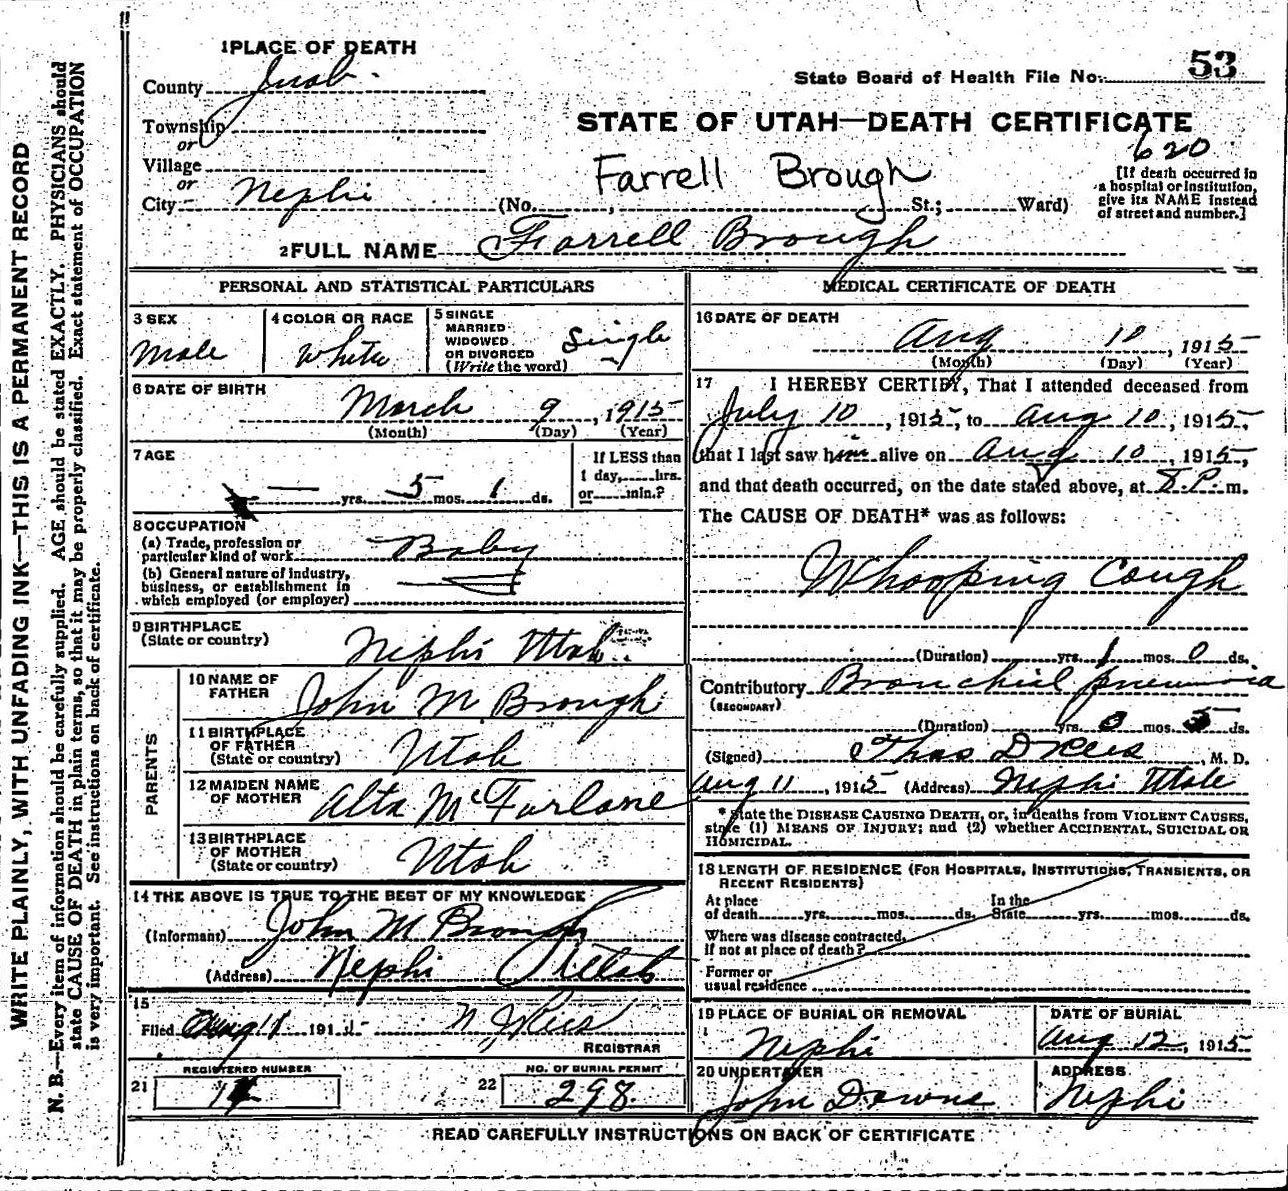 1 PLACE OF DEATH
County Juab.
Township
or
Village
or
City Nephi
State Board of Health File No. 53
STATE OF UTAH—DEATH CERTIFICATE
620
Farrell Brough
(No. , St.; Ward)
[If death occurred in
a hospital or institution,
give its NAME instead
of street and number.]
2 FULL NAME Farrell Brough
PERSONAL AND STATISTICAL PARTICULARS
3 SEX
Male
4 COLOR OR RACE
White
5 SINGLE
MARRIED
WIDOWED
OR DIVORCED
(Write the word)
Single
6 DATE OF BIRTH
March 9, 1915
(Month) (Day) (Year)
7 AGE
— yrs. 5 mos. 1 ds.
If LESS than
1 day, hrs.
or min.?
8 OCCUPATION
(a) Trade, profession or
particular kind of work Baby
(b) General nature of industry,
business, or establishment in
which employed (or employer)
9 BIRTHPLACE
(State or country) Nephi Utah
PARENTS
10 NAME OF
FATHER John M Brough
11 BIRTHPLACE
OF FATHER
(State or country) Utah
12 MAIDEN NAME
OF MOTHER Alta McFarlane
13 BIRTHPLACE
OF MOTHER
(State or country) Utah
14 THE ABOVE IS TRUE TO THE BEST OF MY KNOWLEDGE
(Informant) John M Brough
(Address) Nephi Utah
15
Filed Aug 11 191
REGISTRAR
REGISTERED NUMBER
21
NO. OF BURIAL PERMIT
22 298
MEDICAL CERTIFICATE OF DEATH
16 DATE OF DEATH
Aug 10, 1915
(Month) (Day) (Year)
17 I HEREBY CERTIFY, That I attended deceased from
July 10, 1915, to Aug 10, 1915,
that I last saw him alive on Aug 10, 1915,
and that death occurred, on the date stated above, at 8 P. m.
The CAUSE OF DEATH* was as follows:
Whooping Cough
(Duration) yrs. 1 mos. 0 ds.
Contributory Bronchial pneumonia
(SECONDARY)
(Duration) yrs. 0 mos. 5 ds.
(Signed) Thos D Rees, M. D.
Aug 11, 1915 (Address) Nephi Utah
* State the DISEASE CAUSING DEATH, or, in deaths from VIOLENT CAUSES,
state (1) MEANS OF INJURY; and (2) whether ACCIDENTAL, SUICIDAL OR
HOMICIDAL.
18 LENGTH OF RESIDENCE (FOR HOSPITALS, INSTITUTIONS, TRANSIENTS, OR
RECENT RESIDENTS)
At place
of death yrs. mos. ds.
In the
State yrs. mos. ds.
Where was disease contracted,
if not at place of death?
Former or
usual residence
19 PLACE OF BURIAL OR REMOVAL
Nephi
DATE OF BURIAL
Aug 12, 1915
20 UNDERTAKER
John Downs
ADDRESS
Nephi
READ CAREFULLY INSTRUCTIONS ON BACK OF CERTIFICATE
WRITE PLAINLY, WITH UNFADING INK—THIS IS A PERMANENT RECORD
N. B.—Every item of information should be carefully supplied. AGE should be stated EXACTLY. PHYSICIANS should
state CAUSE OF DEATH in plain terms, so that it may be properly classified. Exact statement of OCCUPATION
is very important. See instructions on back of certificate.